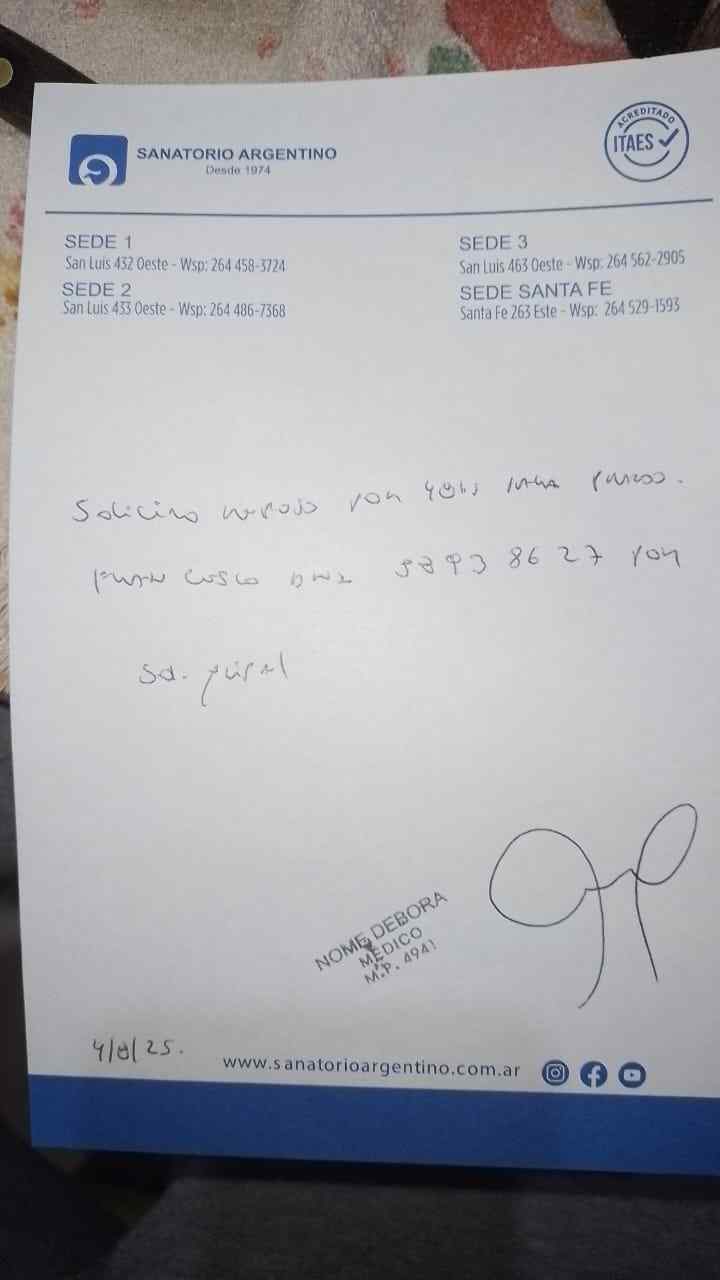 SANATORIO ARGENTINO
Desde 1974
ACREDITADO
ITAES
SEDE 1
San Luis 432 Oeste - Wsp: 264 458-3724
SEDE 2
San Luis 433 Oeste - Wsp: 264 486-7368
SEDE 3
San Luis 463 Oeste - Wsp: 264 562-2905
SEDE SANTA FE
Santa Fe 263 Este - Wsp: 264 529-1593
Solicito reposo por 48hs para
DNI 38938627 por
sd. gripal
NOME DEBORA
MÉDICO
M.P. 4941
4/8/25.
www.sanatorioargentino.com.ar